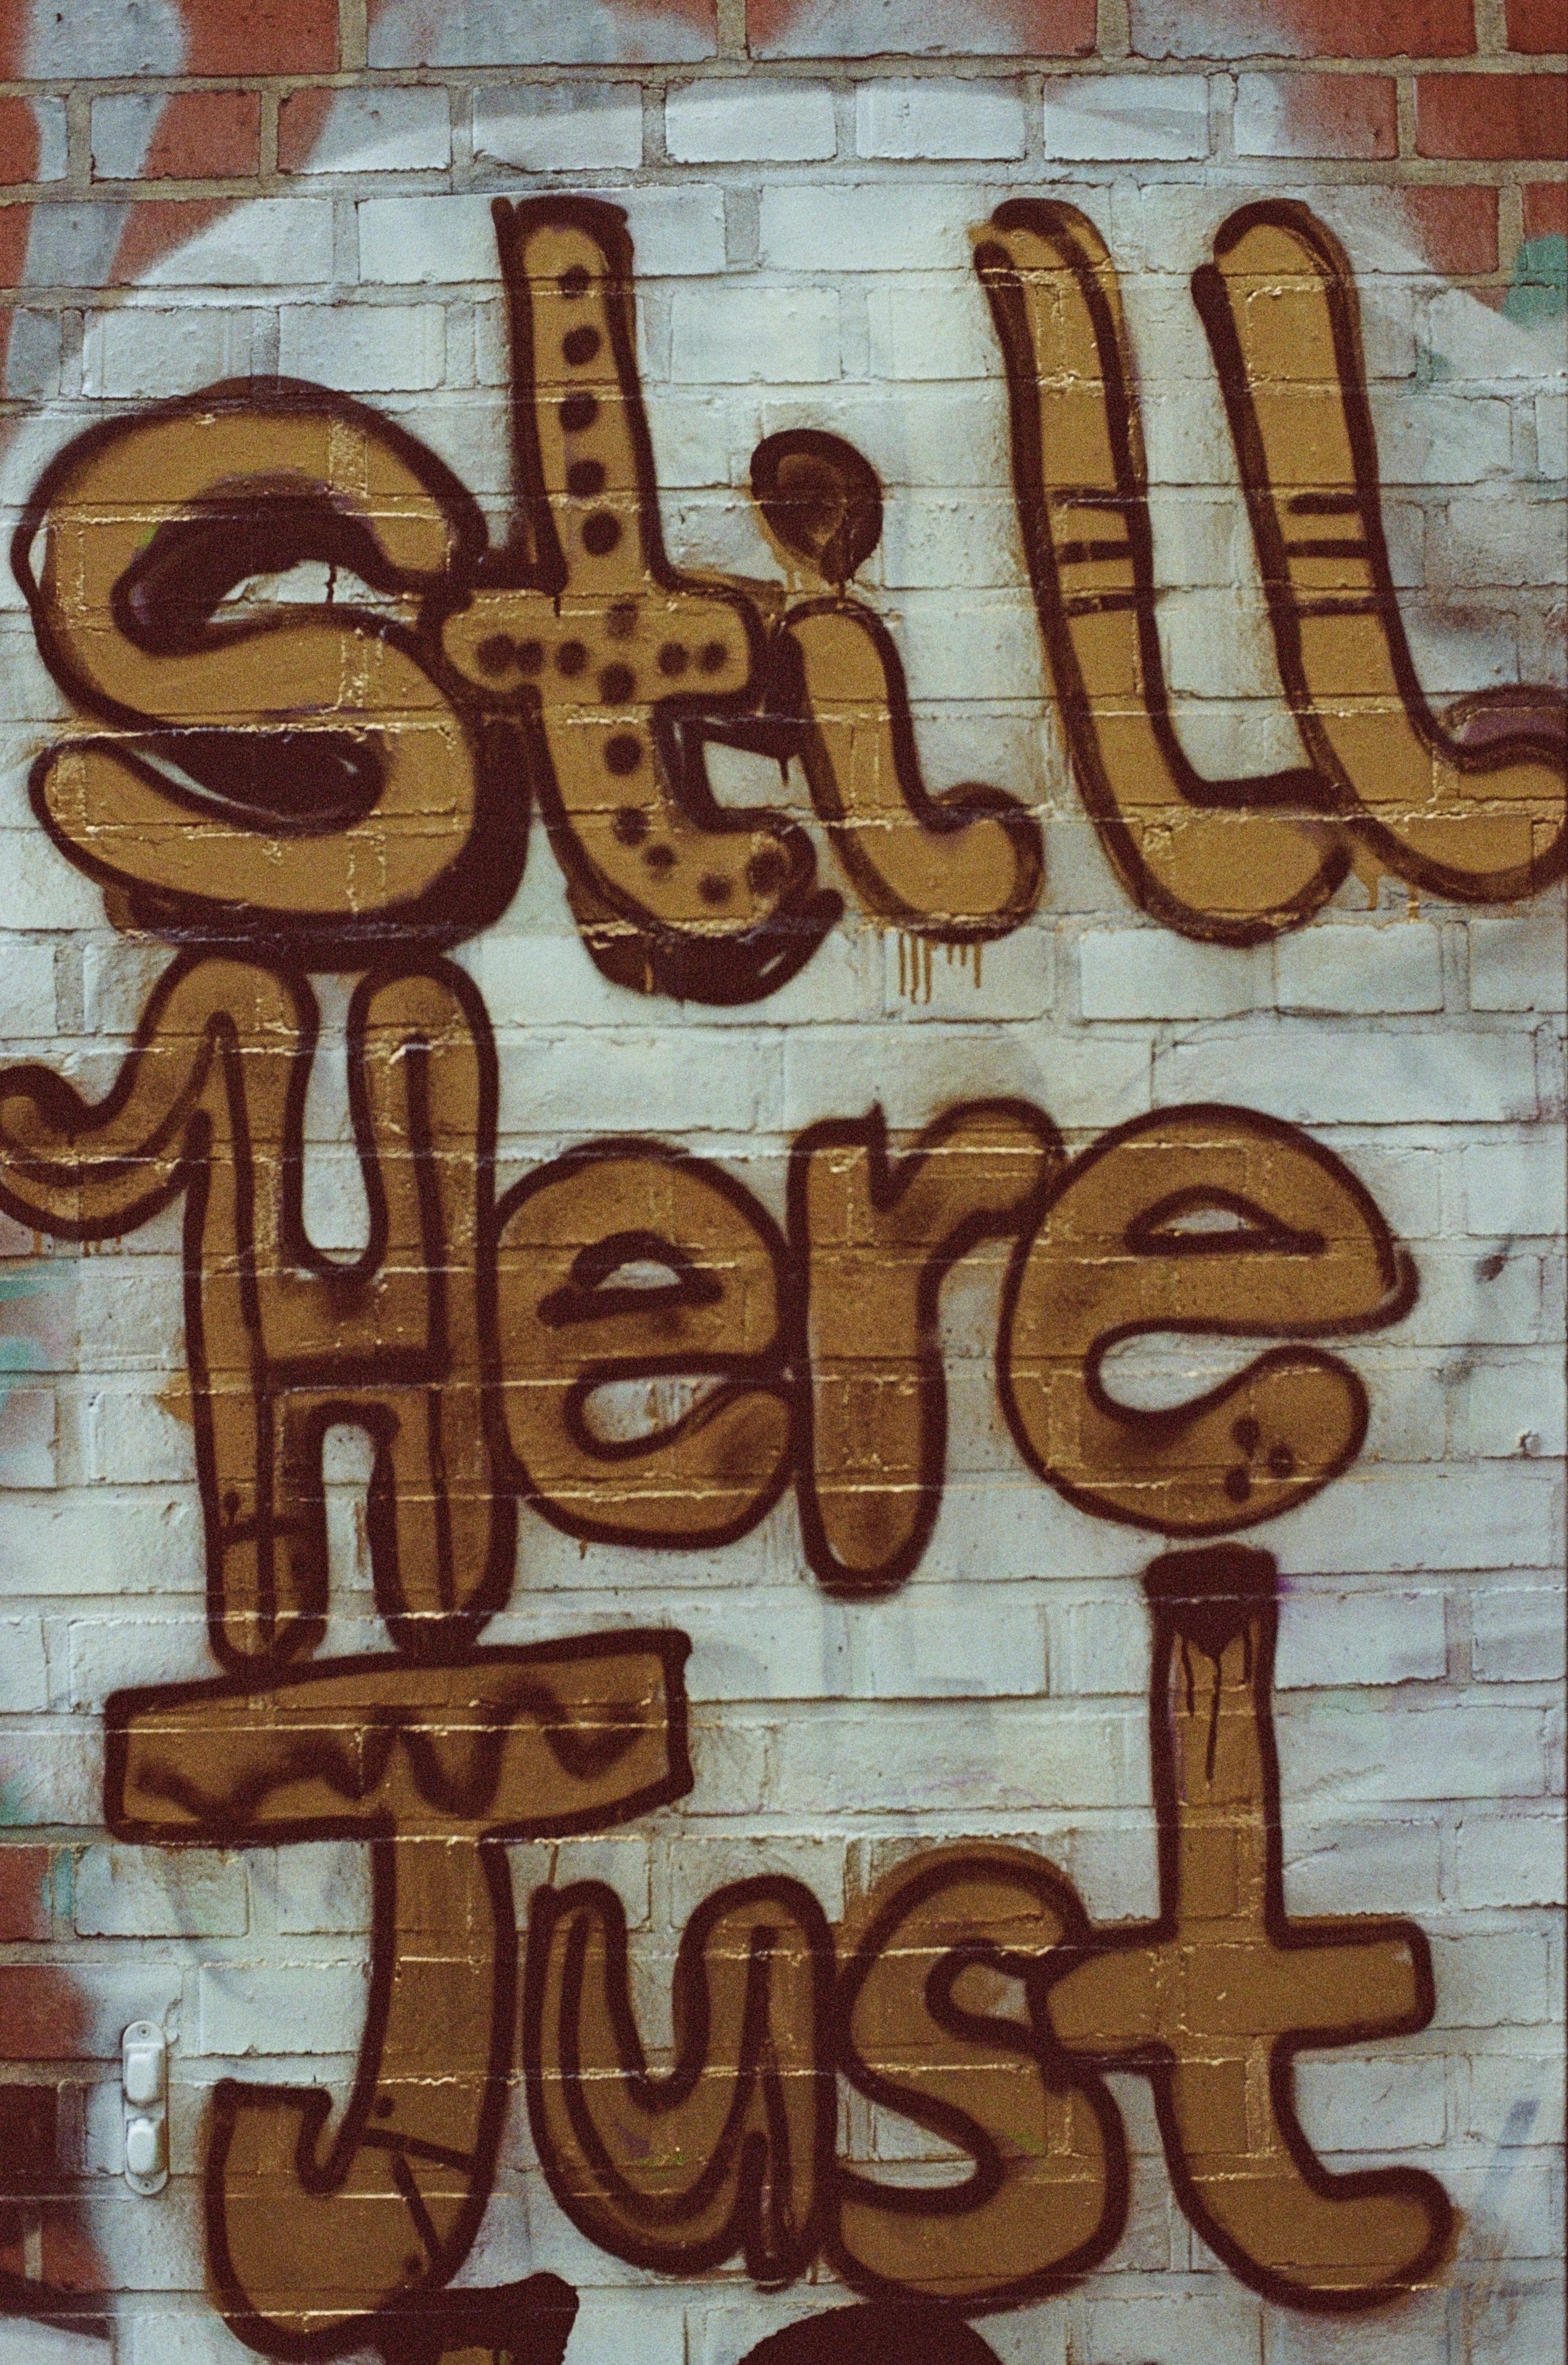 Still
Here
Just